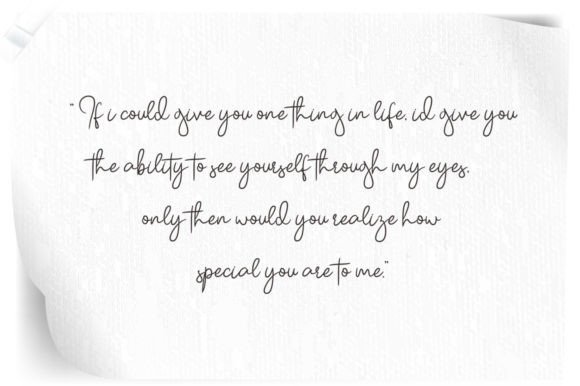 "If i could give you one thing in life, id give you
the ability to see yourself through my eyes,
only then would you realize how
special you are to me."